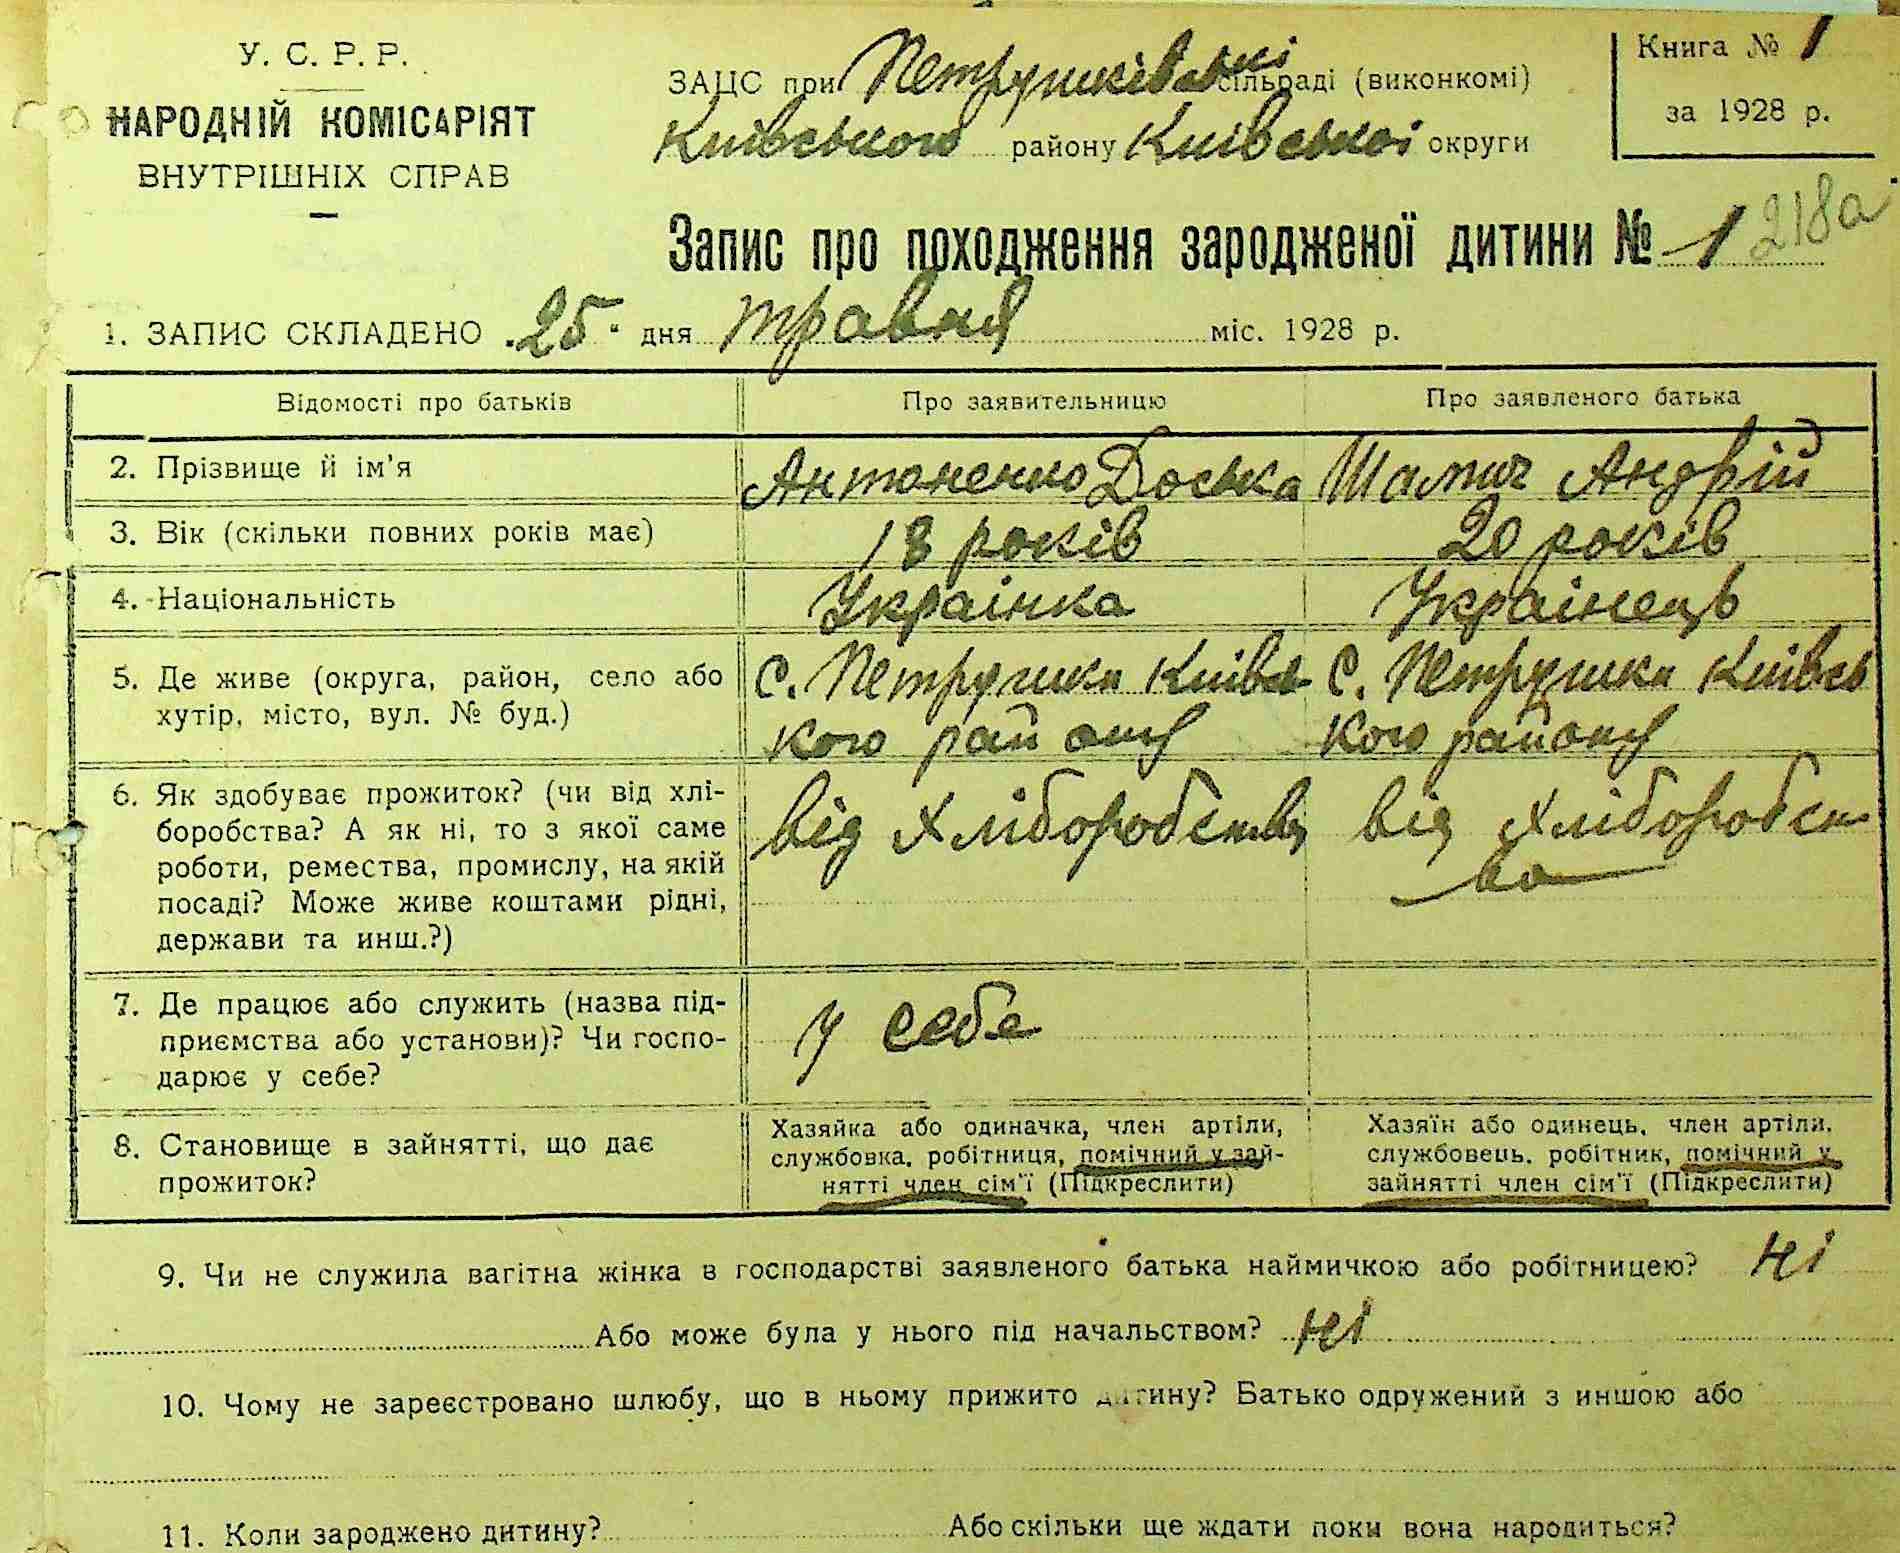 У. С. Р. Р.
НАРОДНІЙ КОМІСАРІЯТ
ВНУТРІШНІХ СПРАВ
ЗАЦС при Петрушківській сільраді (виконкомі)
Київського району Київської округи
Книга № 1
за 1928 р.
Запис про походження зародженої дитини № 1 218а
1. ЗАПИС СКЛАДЕНО 25 дня травня міс. 1928 р.
Відомості про батьків Про заявительницю Про заявленого батька
2. Прізвище й ім'я Антоненко Доська Шамич Андрій
3. Вік (скільки повних років має) 18 років 20 років
4. Національність Украінка Украінець
5. Де живе (округа, район, село або
хутір, місто, вул. № буд.)
с. Петрушки Київсь
кого району
с. Петрушки Київсь
кого району
6. Як здобуває прожиток? (чи від хлі-
боробства? А як ні, то з якої саме
роботи, ремества, промислу, на якій
посаді? Може живе коштами рідні,
держави та инш.?)
від Хліборобства
від Хліборобст
ва
7. Де працює або служить (назва під-
приємства або установи)? Чи госпо-
дарює у себе?
у себе
8. Становище в зайнятті, що дає
прожиток?
Хазяйка або одиначка, член артіли,
службовка, робітниця, помічний у зай-
нятті член сім'ї (Підкреслити)
Хазяїн або одинець, член артіли,
службовець, робітник, помічний у
зайнятті член сім'ї (Підкреслити)
9. Чи не служила вагітна жінка в господарстві заявленого батька наймичкою або робітницею? Ні
Або може була у нього під начальством? Ні
10. Чому не зареєстровано шлюбу, що в ньому прижито дитину? Батько одружений з иншою або
11. Коли зароджено дитину? Або скільки ще ждати поки вона народиться?